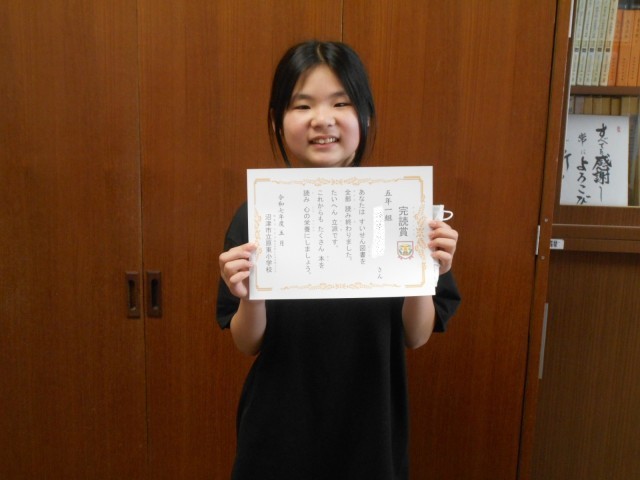 完読賞
五年一組
さん
あなたは すいせん図書を
全部 読み終わりました。
たいへん 立派です。
これからも たくさん 本を
読み 心の栄養にしましょう。
令和七年度 五月
沼津市立原東小学校
すべてを感謝し
よろこび